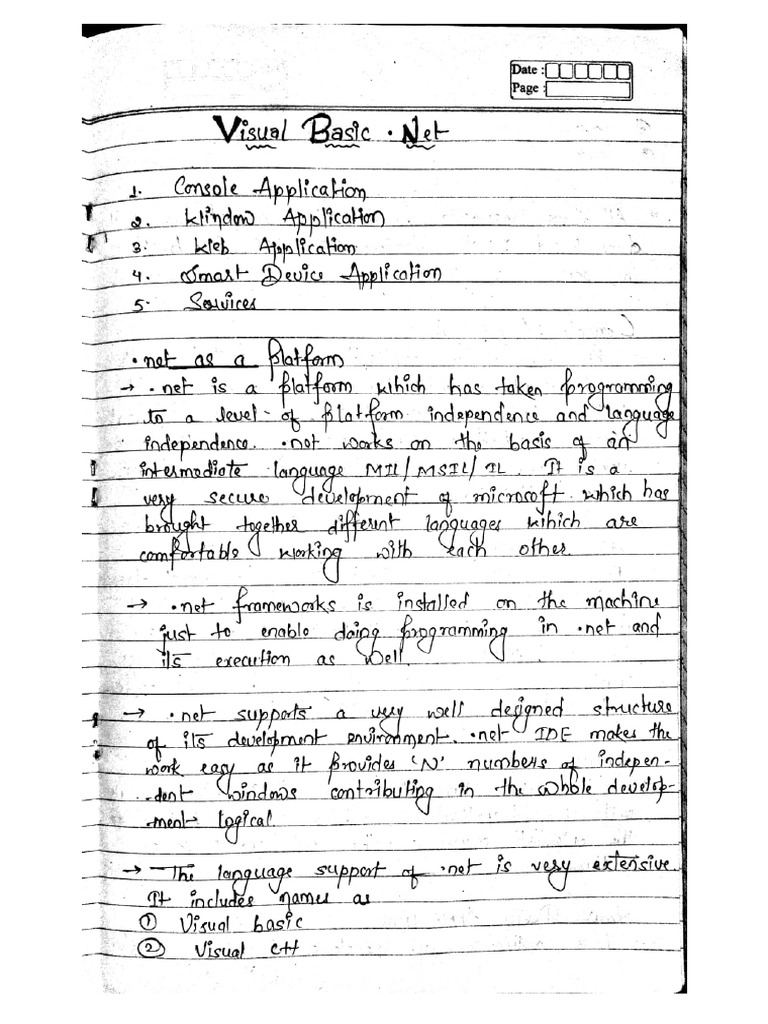 Date :
Page :
Visual Basic .Net
1. Console Application
2. Window Application
3. Web Application
4. Smart Device Application
5. Services
.net as a platform
→ .net is a platform which has taken programming
to a level of platform independence and language
independence. .net works on the basis of an
intermediate language MIL/MSIL/IL. It is a
very secure development of microsoft which has
brought together different languages which are
comfortable working with each other
→ .net frameworks is installed on the machine
just to enable doing programming in .net and
its execution as well.
→ .net supports a very well designed structure
of its development environment. .net IDE makes the
work easy as it provides 'N' numbers of indepen-
-dent windows contributing in the whole develop-
-ment logical.
→ The language support of .net is very extensive.
It includes names as
① Visual basic
② Visual C++